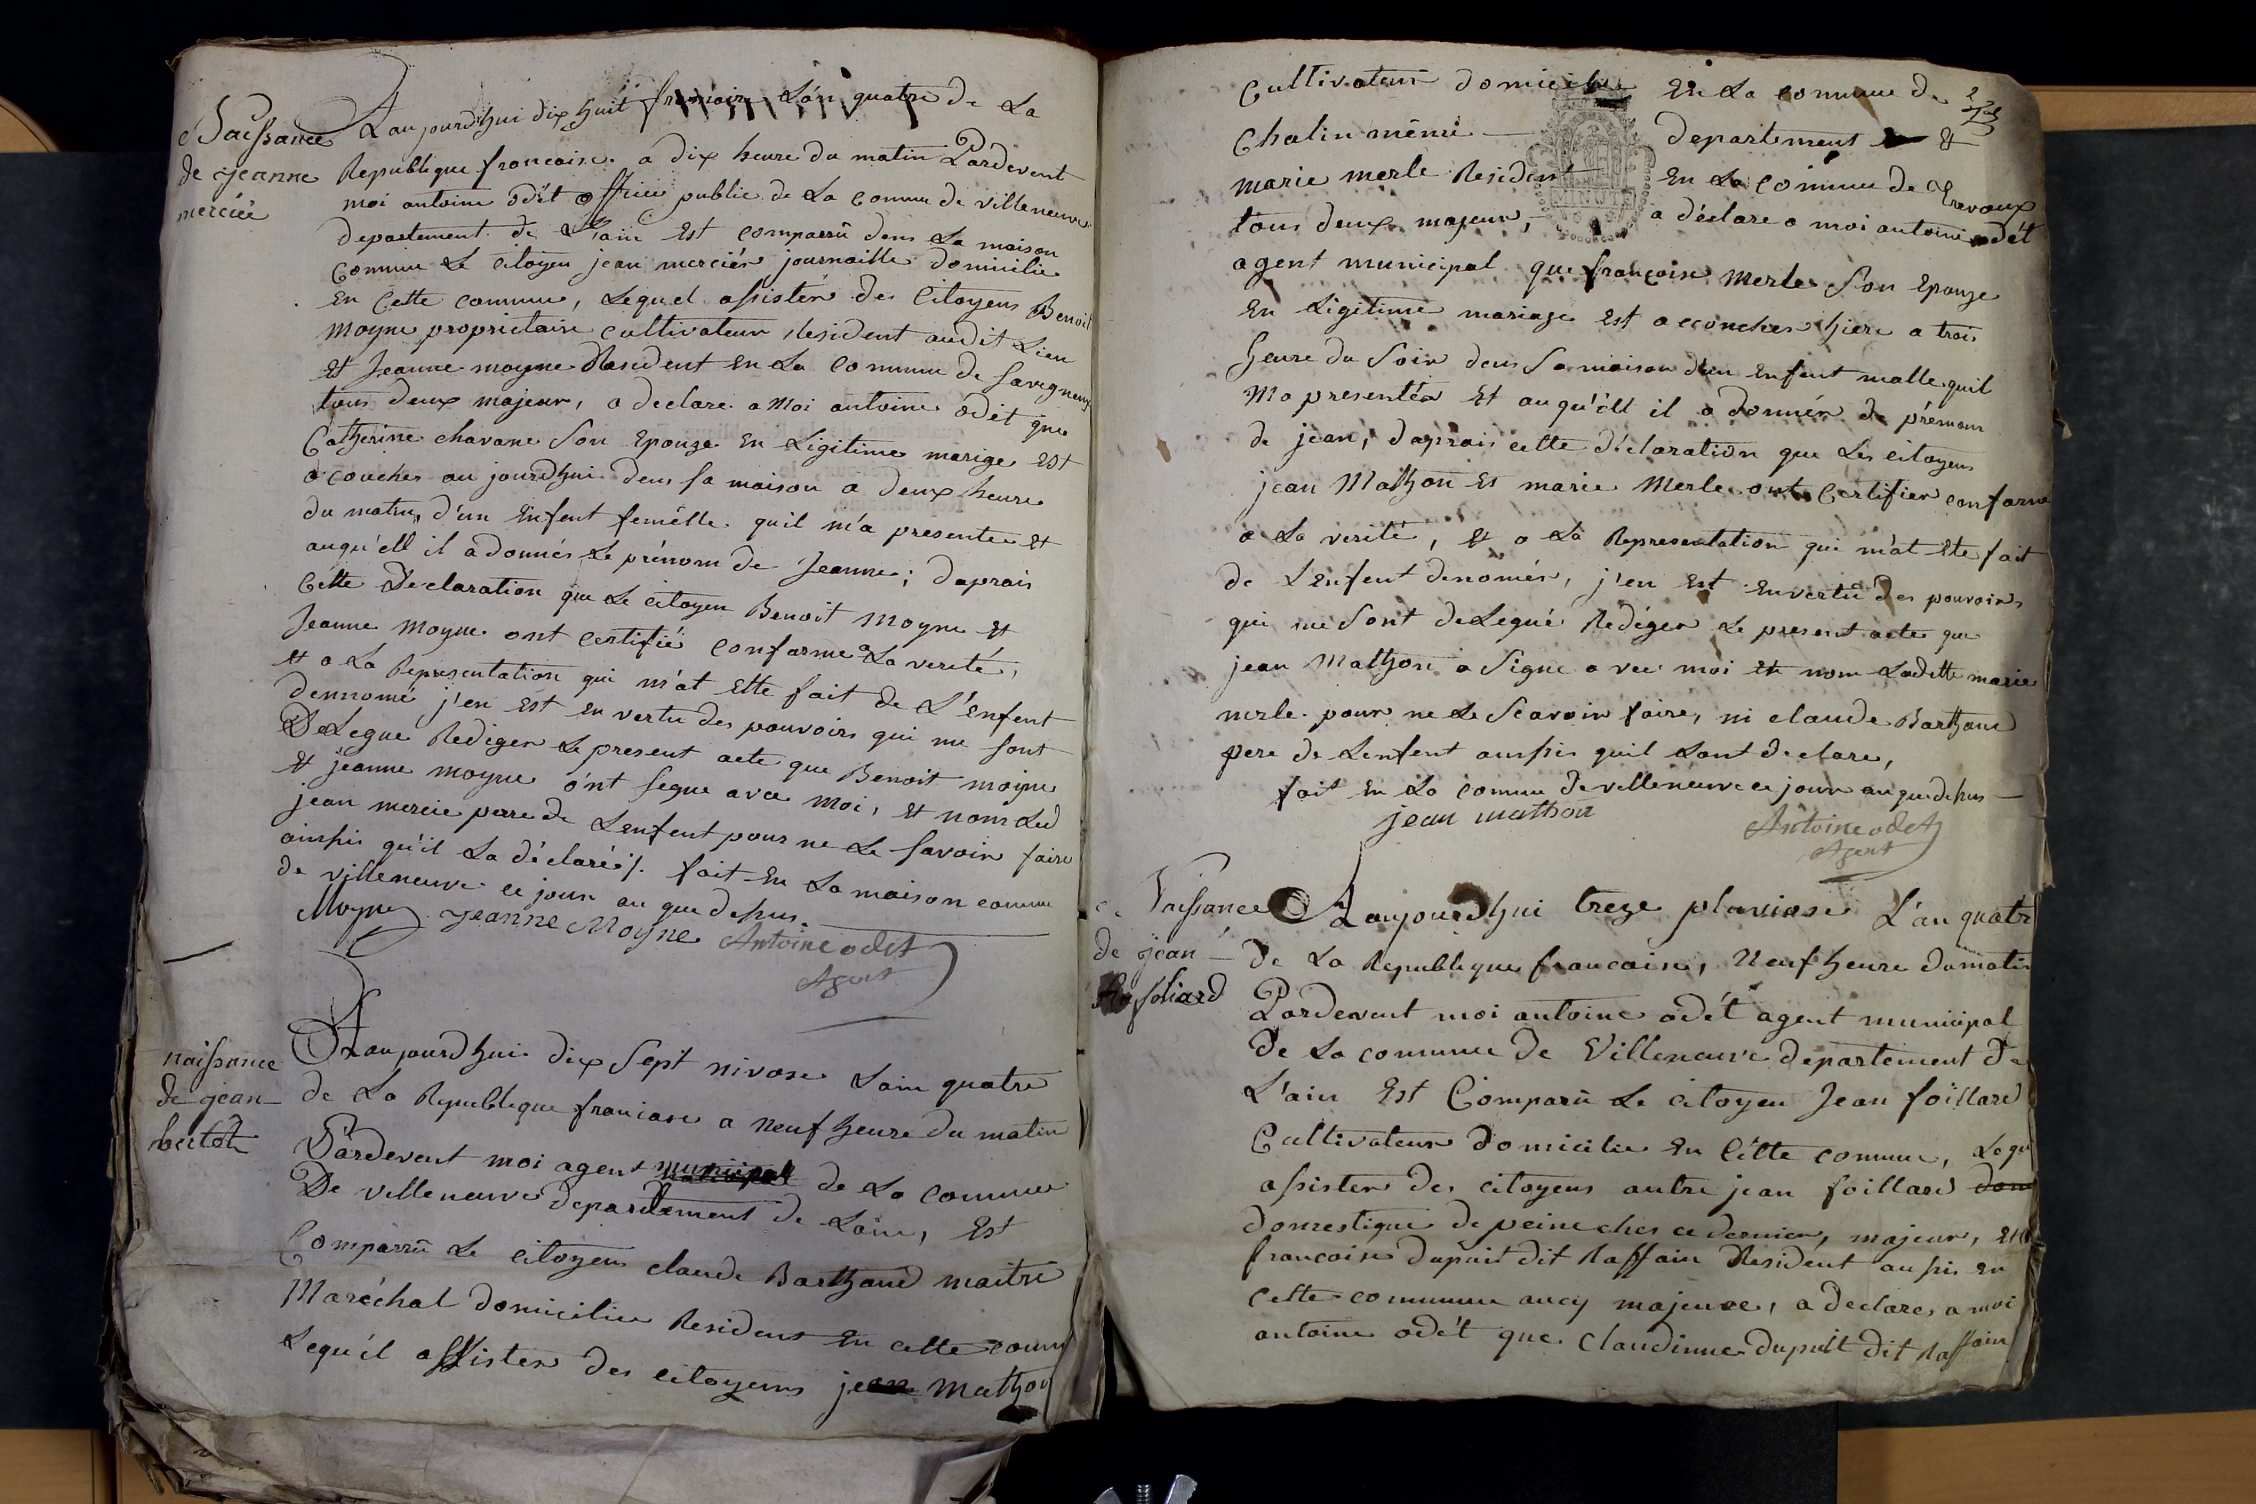 Naissance
de jeanne
merciér
Laujourdhui dix huit frimaire L'an quatre de La
Republique francoise a dix heure du matin Pardevent
moi antoine odét officier public de La Comune de villeneuve
departement de L'ain Est comparrû dens La maison
Commune Le Citoyen jean merciér journaille domicilie
En Cette commune, Lequel assistér des Citoyens Benoit
moyne proprietaire cultivateur Resident audit Lieu
Et Jeanne moyne Resident en La Commune de Savigneux
tous deux majeur, a declare a Moi antoine odét que
Catherine chavane Son Epouze En Ligitime marige Est
acouchér au jourdhui dens sa maison a deux heure
du matin, d'un Enfent femélle. quil m'a presentee et
auqu'ell il a donnér Le prénom de Jeanne; daprais
Cette Declaration que Le citoyen Benoit Moyne Et
Jeanne Moyne ont certifié conforme a La verité,
Et a La Representation qui m'at Ette fait de L'enfent
dennomé j'en Est en vertu des pouvoirs qui me sont
DeLegue Rediger Le present acte que Benoit moyne
Et jeanne moyne o'nt segne avec Moi, Et nom Led
jean mercie pere de Lenfent pour ne Le savoir faire
ainssi qu'il La déclaré/. fait En La maison comune
de villeneuve ce jour an que dessus.
Moyne Jeanne Moyne Antoine odet
Agent
naissance
de jean
bertôt
Laujourdhui dix Sept nivose Lain quatre
de La Republique franciase a neuf heure du matin
Pardevent moi agent municipal de La Comune
De villeneuve departement de Lain, Est
Comparrû Le citoyen claude Barthaud maitre
Maréchal domicilier Resident en cette comm
Lequ'él assister des citoyens jean mathon
Cultivateur domicilie En La commune de
Chalin même departement Et
marie merle Resident En La Commune de Trevoux
tous deux majeur, a déclare a moi antoine odét
agent municipal que francoise merle Son Epouze
En Ligitime mariage Est acoucher hiere a trois
heure du Soir dens Sa maison d'un Enfent malle quil
Ma presentér Et auqu'éll il a donnér de prénom
de jean, daprais cette déclaration que Les citoyens
jean Mathon Et marie Merle ont Certifier conforme
a La verité, Et a La Representation qui m'at Ete fait
de L'enfent denomér, j'en Est en vertû des pouvoirs
qui me Sont deLegué Rediger Le present acte que
jean Mathon a Signe avec moi et nom Ladette marie
merle pour ne Le Scavoir faire, ni claude Barthaud
pere de Lenfent aussis quil Lont declare,
fait En La comune de velleneuve ce jour an que dessus
jean mathon
Antoine odet
Agent
Naissance
de jean
foliard
Laujourdhui treze pluviose L'an quatre
de La Republique francaise, Neuf heure du matin
Pardevent moi antoine odét agent municipal
De La comune de Villeneuve departement De
L'ain Est Comparû Le citoyen Jean foillard
Cultivateur domicilie En Cétte commune, Lequ
assister des citoyens autre jean foillard dom
domestique de peine ches ce dernier, majeur, Et
francoise dupuit dit Raffain Resident aussis en
Cette commune aucy majeure, a declare a moi
antoine odét que Claudinne dupuit dit Raffain